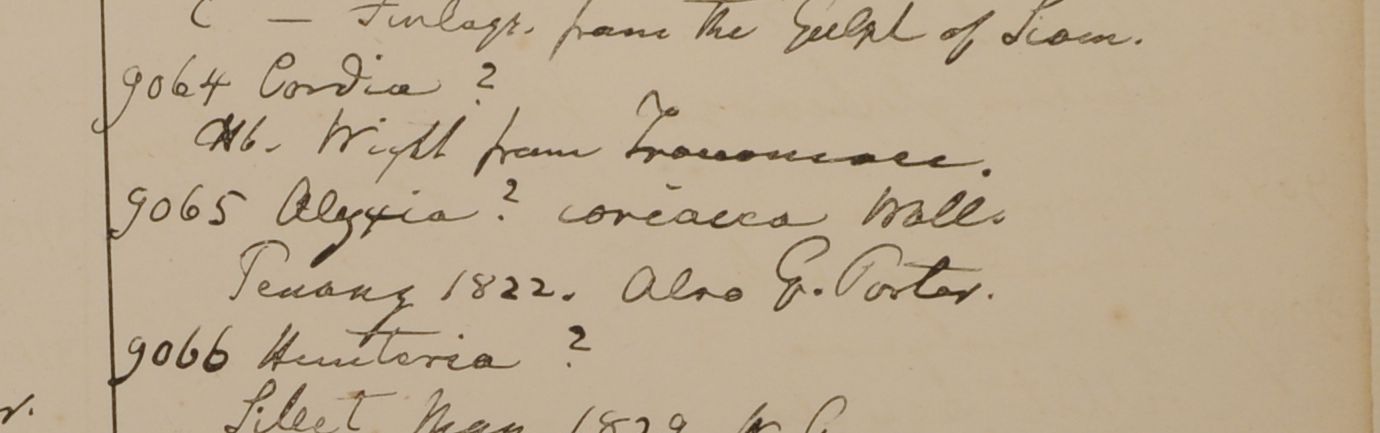 C — Finlays. from the Gulph of Siam.
9064 Cordia ?
Hb. Wight from Travancore.
9065 Alyxia ? coriacea Wall.
Penang 1822. Also G. Porter.
9066 Hunteria ?
Silhet May 1829